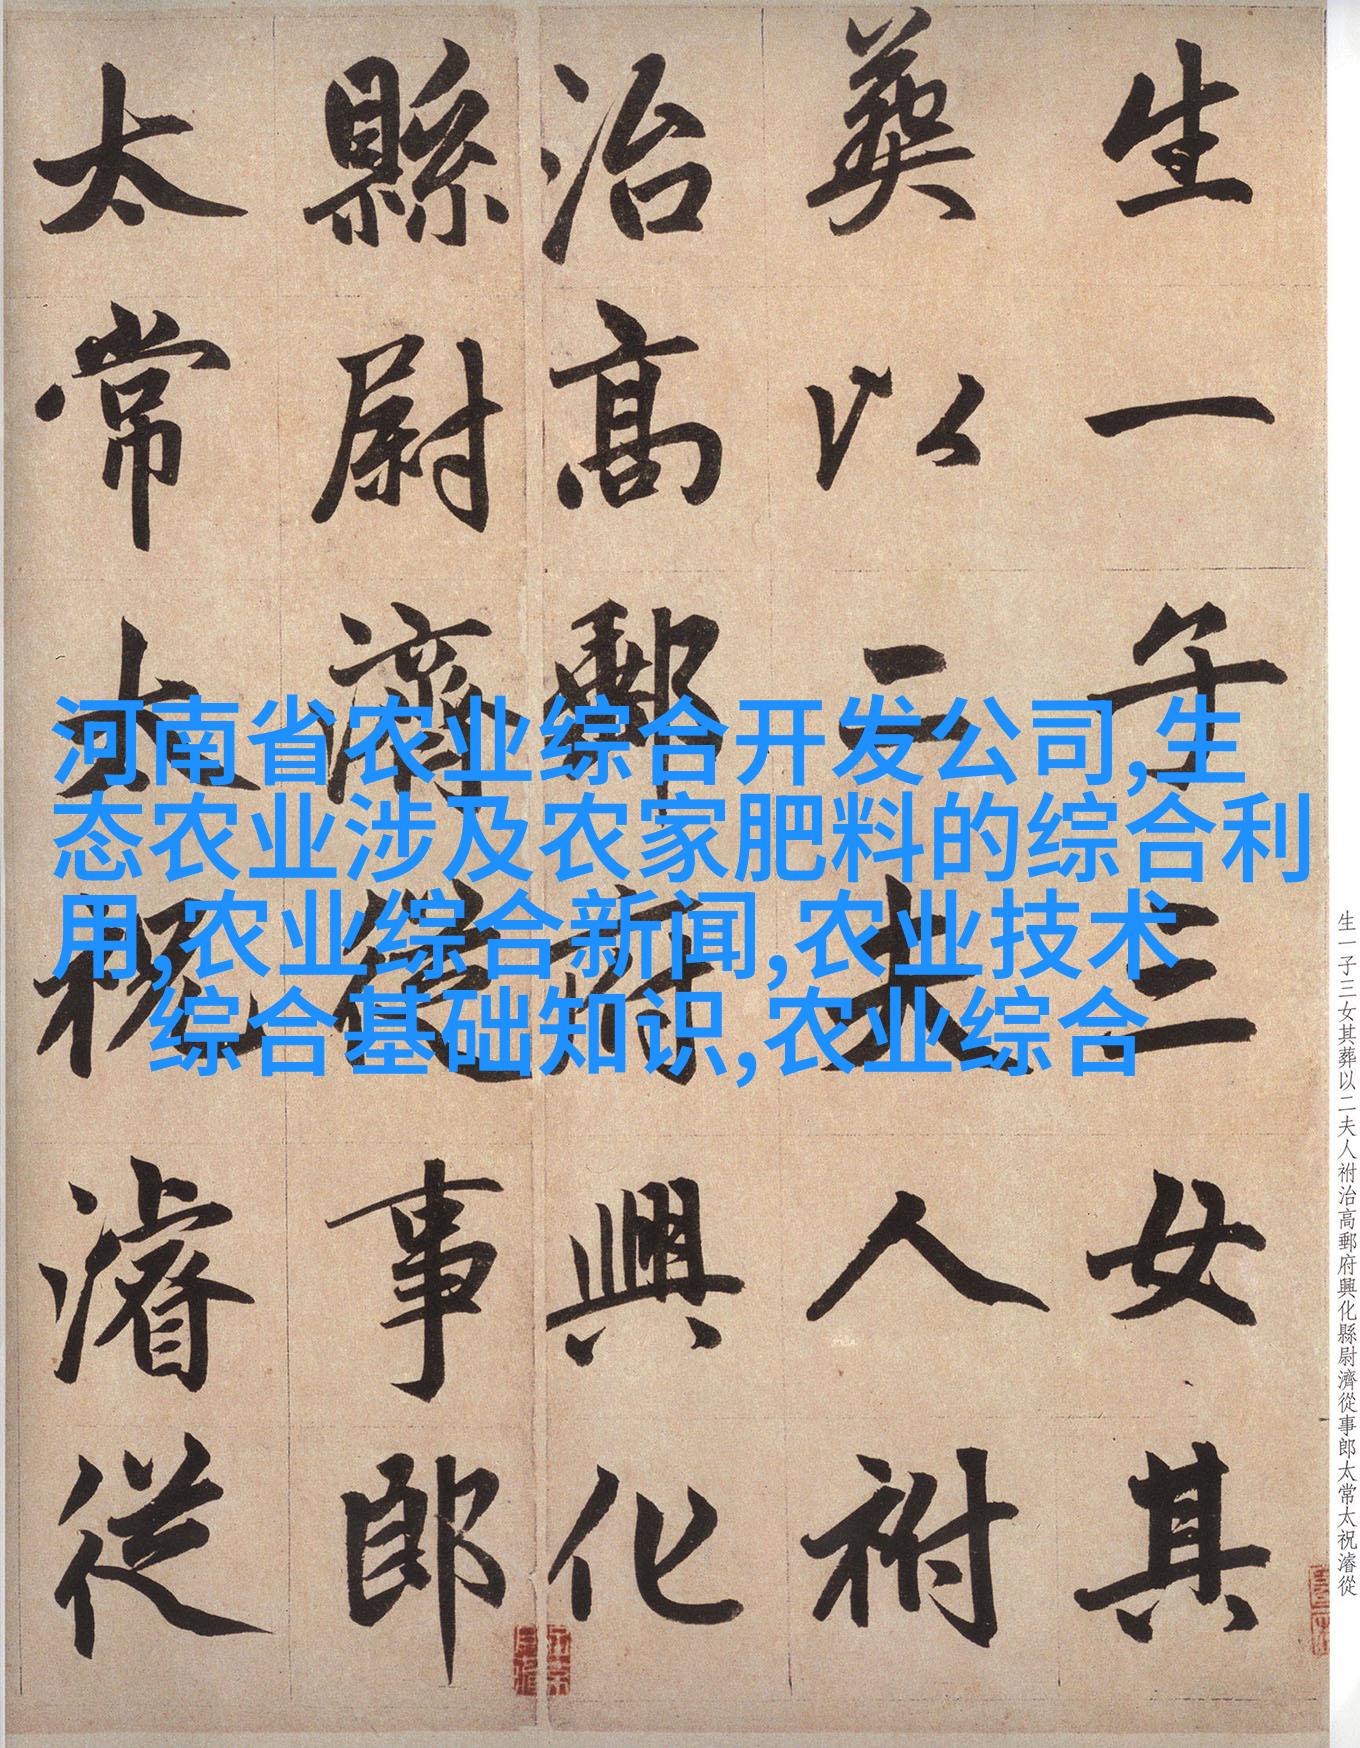 生一子三女其
葬以二夫人祔
治高郵府興化
縣尉濟從事郎
太常太祝濬從
河南省农业综合开发公司,生
态农业涉及农家肥料的综合利
用,农业综合新闻,农业技术
综合基础知识,农业综合
生一子三女其葬以二夫人祔治高郵府興化縣尉濟從事郎太常太祝濬從